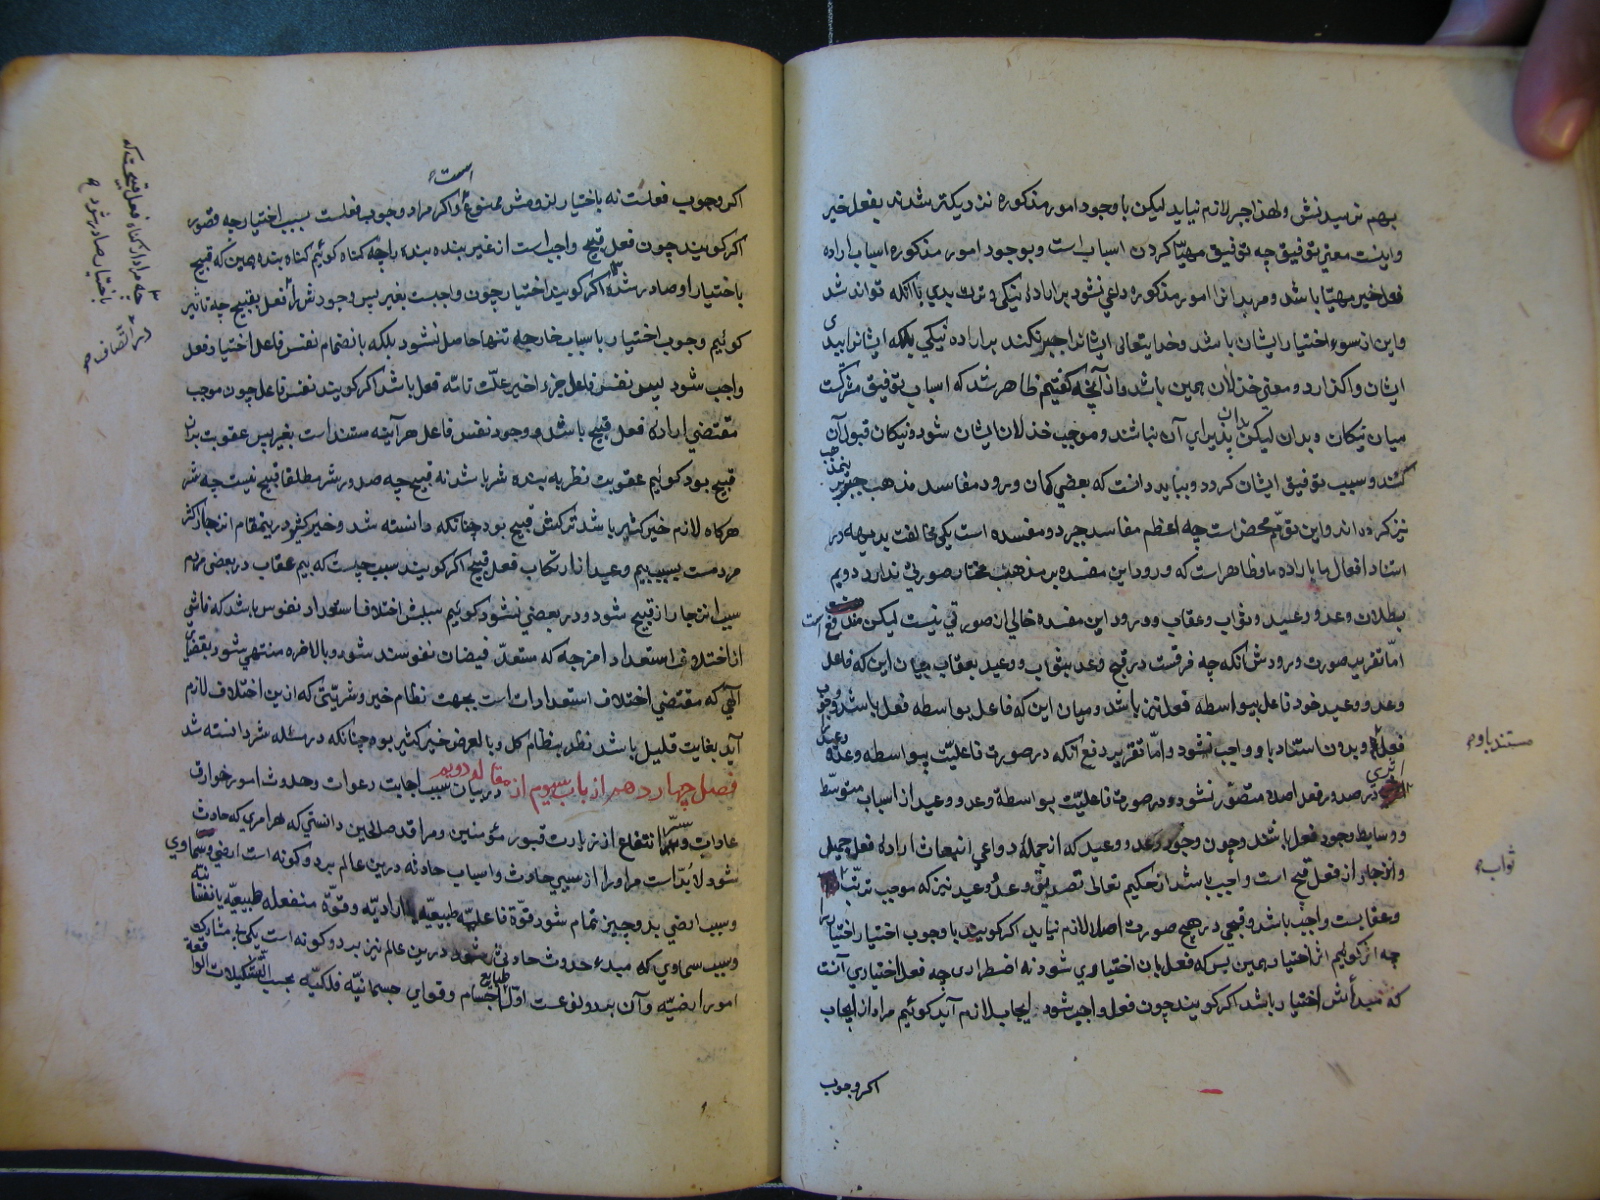 بهم نرسیدنش ولهذا جبر لازم نیاید لیکن با وجود امور مذکوره نزدیکتر شدند بفعل خیر
واینست معنی توفیق چه توفیق مهیّا کردن اسباب است وبوجود امور مذکوره اسباب اراده
فعل خیر مهیّا باشد ومر بدانرا امور مذکوره داعی نشود بر اراده نیکی وترک بدی با آنکه تواند شد
واین از سوء اختیار ایشان باشد وخدایتعالی ایشانرا جبر نکند بر اراده نیکی بلکه ایشانرا ببدی
ایشان واگذارد ومعنی خذلان همین باشد واز آنچه گفتیم ظاهر شد که اسباب توفیق مشترکست
میان نیکان وبدان لیکن بدان پذیرای آن نباشند وموجب خذلان ایشان شود ونیکان قبول آن
کنند وسبب توفیق ایشان گردد وبباید دانست که بعضی گمان ورود مفاسد مذهب جبر
نیز کرده‌اند واین توهّم محض است چه اعظم مفاسد جبر دو مفسده است یکی مخالفت بدیهه در
استناد افعال ما باراده ما وظاهر است که ورود این مفسده بر مذهب مختار صورتی ندارد دویم
بطلان وعد ووعید وثواب وعقاب وورود این مفسده خالی از صورتی نیست لیکن مندفع است
امّا تقریب صورت ورودش آنکه چه فرقست در قبح وعد بثواب ووعید بعقاب میان این که فاعل
وعد ووعید خود فاعل بیواسطه فعل نیز باشد ومیان این که فاعل بواسطه فعل باشد ووجوب
فعل بدون استناد باو واجب نشود وامّا تقریر دفع آنکه در صورت فاعلیّت بیواسطه وعد ووعید
اثری در صدور فعل اصلا متصوّر نشود ودر صورت فاعلیّت بواسطه وعد ووعید از اسباب متوسّط
ووسایط وجود فعل باشد وچون وجود وعد ووعید که از جمله دواعی انبعاث اراده فعل جمیل
وانزجار از فعل قبیح است واجب باشد از حکیم تعالی تصدیق وعد ووعید نیز که موجب ترتّب
وعقابست واجب باشد وقبحی در هیچ صورت اصلا لازم نیاید اگر گویند با وجوب اختیار اختیار
چه اثر گوئیم اثر اختیار همین بس که فعل بان اختیاری شود نه اضطراری چه فعل اختیاری آنست
که مبدأش اختیار باشد اگر گویند چون فعل واجب شود ایجاب لازم آید گوئیم مراد از ایجاب
اگر وجوب
مستند باو
ثواب
اگر وجوب فعلست نه باختیار لزومش ممنوع است واگر مراد وجوب فعلست بسبب اختیار چه قصور
اگر گویند چون فعل قبیح واجب است از غیر بنده بنده را چه گناه گوئیم گناه بنده همین که قبیح
باختیار او صادر شده اگر گویند اختیار چون واجبست بغیر پس وجودش را فعل بقبیح چه تاثیر
گوئیم وجوب اختیار باسباب خارجه تنها حاصل نشود بلکه بانضمام نفس فاعل اختیار وفعل
واجب شود پس نفس فاعل جزء اخیر علّت تامّه فعل باشد اگر گویند نفس فاعل چون موجب
مقتضی اراده فعل قبیح باشد ووجود نفس فاعل هر آینه مستند است بغیر پس عقوبت بران
قبیح بود گوئیم عقوبت نظر به بنده شر باشد نه قبیح چه صدور شر مطلقا قبیح نیست چه شر
هر گاه لازم خیر کثیر باشد ترکش قبیح بود چنانکه دانسته شد وخیر کثیر درینمقام انزجار اکثر
مردمست بسبب بیم وعید از ارتکاب فعل قبیح اگر گویند سبب چیست که بیم عقاب در بعضی مردم
سبب انزجار از قبیح شود ودر بعضی نشود گوئیم سببش اختلاف استعداد نفوس باشد که ناشی
از اختلاف استعداد امزجه که مستعدّ فیضان نفوسند شود وبالاخره منتهی شود بقضای
الهی که مقتضی اختلاف استعدادات است بجهت نظام خیر وشریّتی که ازین اختلاف لازم
آید بغایت قلیل باشد نظر بنظام کل وبالعرض خیر کثیر بود چنانکه در مسئله شر دانسته شد
فصل چهاردهم از باب سیوم از مقاله دویم در بیان سبب اجابت دعوات وحدوث امور خوارق
عادات وسرّ انتفاع از زیارت قبور مؤمنین ومراقد صالحین دانستی که هر امری که حادث
شود لابدّ است مر او را از سببی حادث واسباب حادثه درین عالم بر دو گونه است ارضی وسماوی
وسبب ارضی بدو چیز تمام شود قوّة فاعلیّه طبیعیّه یا ارادیّه وقوّة منفعله طبیعیّه یا نفسانیّه
وسبب سماوی که مبدء حدوث حادثی شود درین عالم نیز بر دو گونه است یکی بمشارکت
امور ارضیّه وآن بر دو نوعست اوّل طبایع اجسام وقوای جسمانیّه فلکیّه بحسب التشکیلات الواقعة
چه مراد از گناه فعل قبیحست که
باختیار صادر شود
در اتّصاف